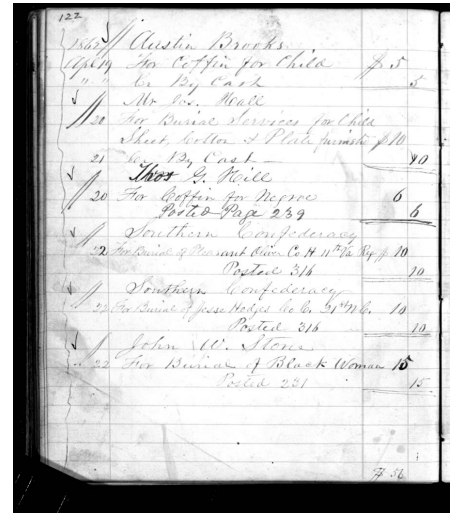 122
1862 Austin Brooks
Apl 19 For Coffin for Child $ 5
" Cr By Cash 5
Mr Jos. Hall
20 For Burial Services for Child
Sheet, Cotton & Plate furnished $ 10
21 Cr By Cash 10
Thos G. Hill
20 For Coffin for Negroe 6
Posted Page 239 6
Southern Confederacy
22 For Burial of Pleasant Oliver Co H 11th Va Reg $ 10
Posted 316 10
Southern Confederacy
22 For Burial of Jesse Hodges Co C. 21st N.C. 10
Posted 316 10
John W. Stone
22 For Burial of Black Woman 15
Posted 231 15
$ 56